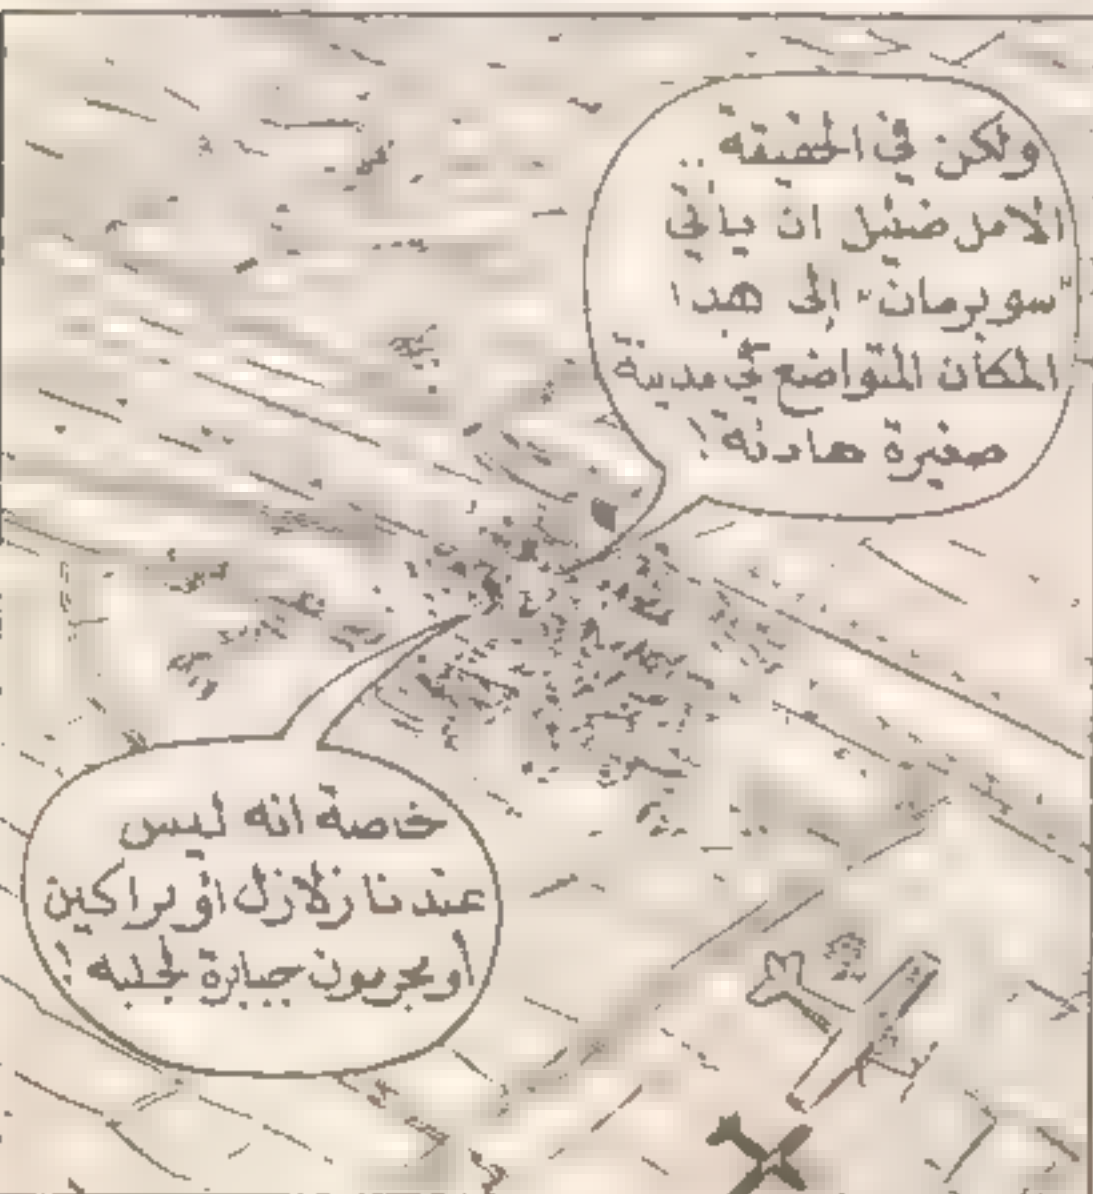 ولكن في الحقيقة..
الامل ضئيل ان يأتي
"سوبرمان" إلى هذا
المكان المتواضع في مدينة
صغيرة هادئة!
خاصة انه ليس
عندنا زلازل او براكين
أو مجرمون جبابرة لجلبه!